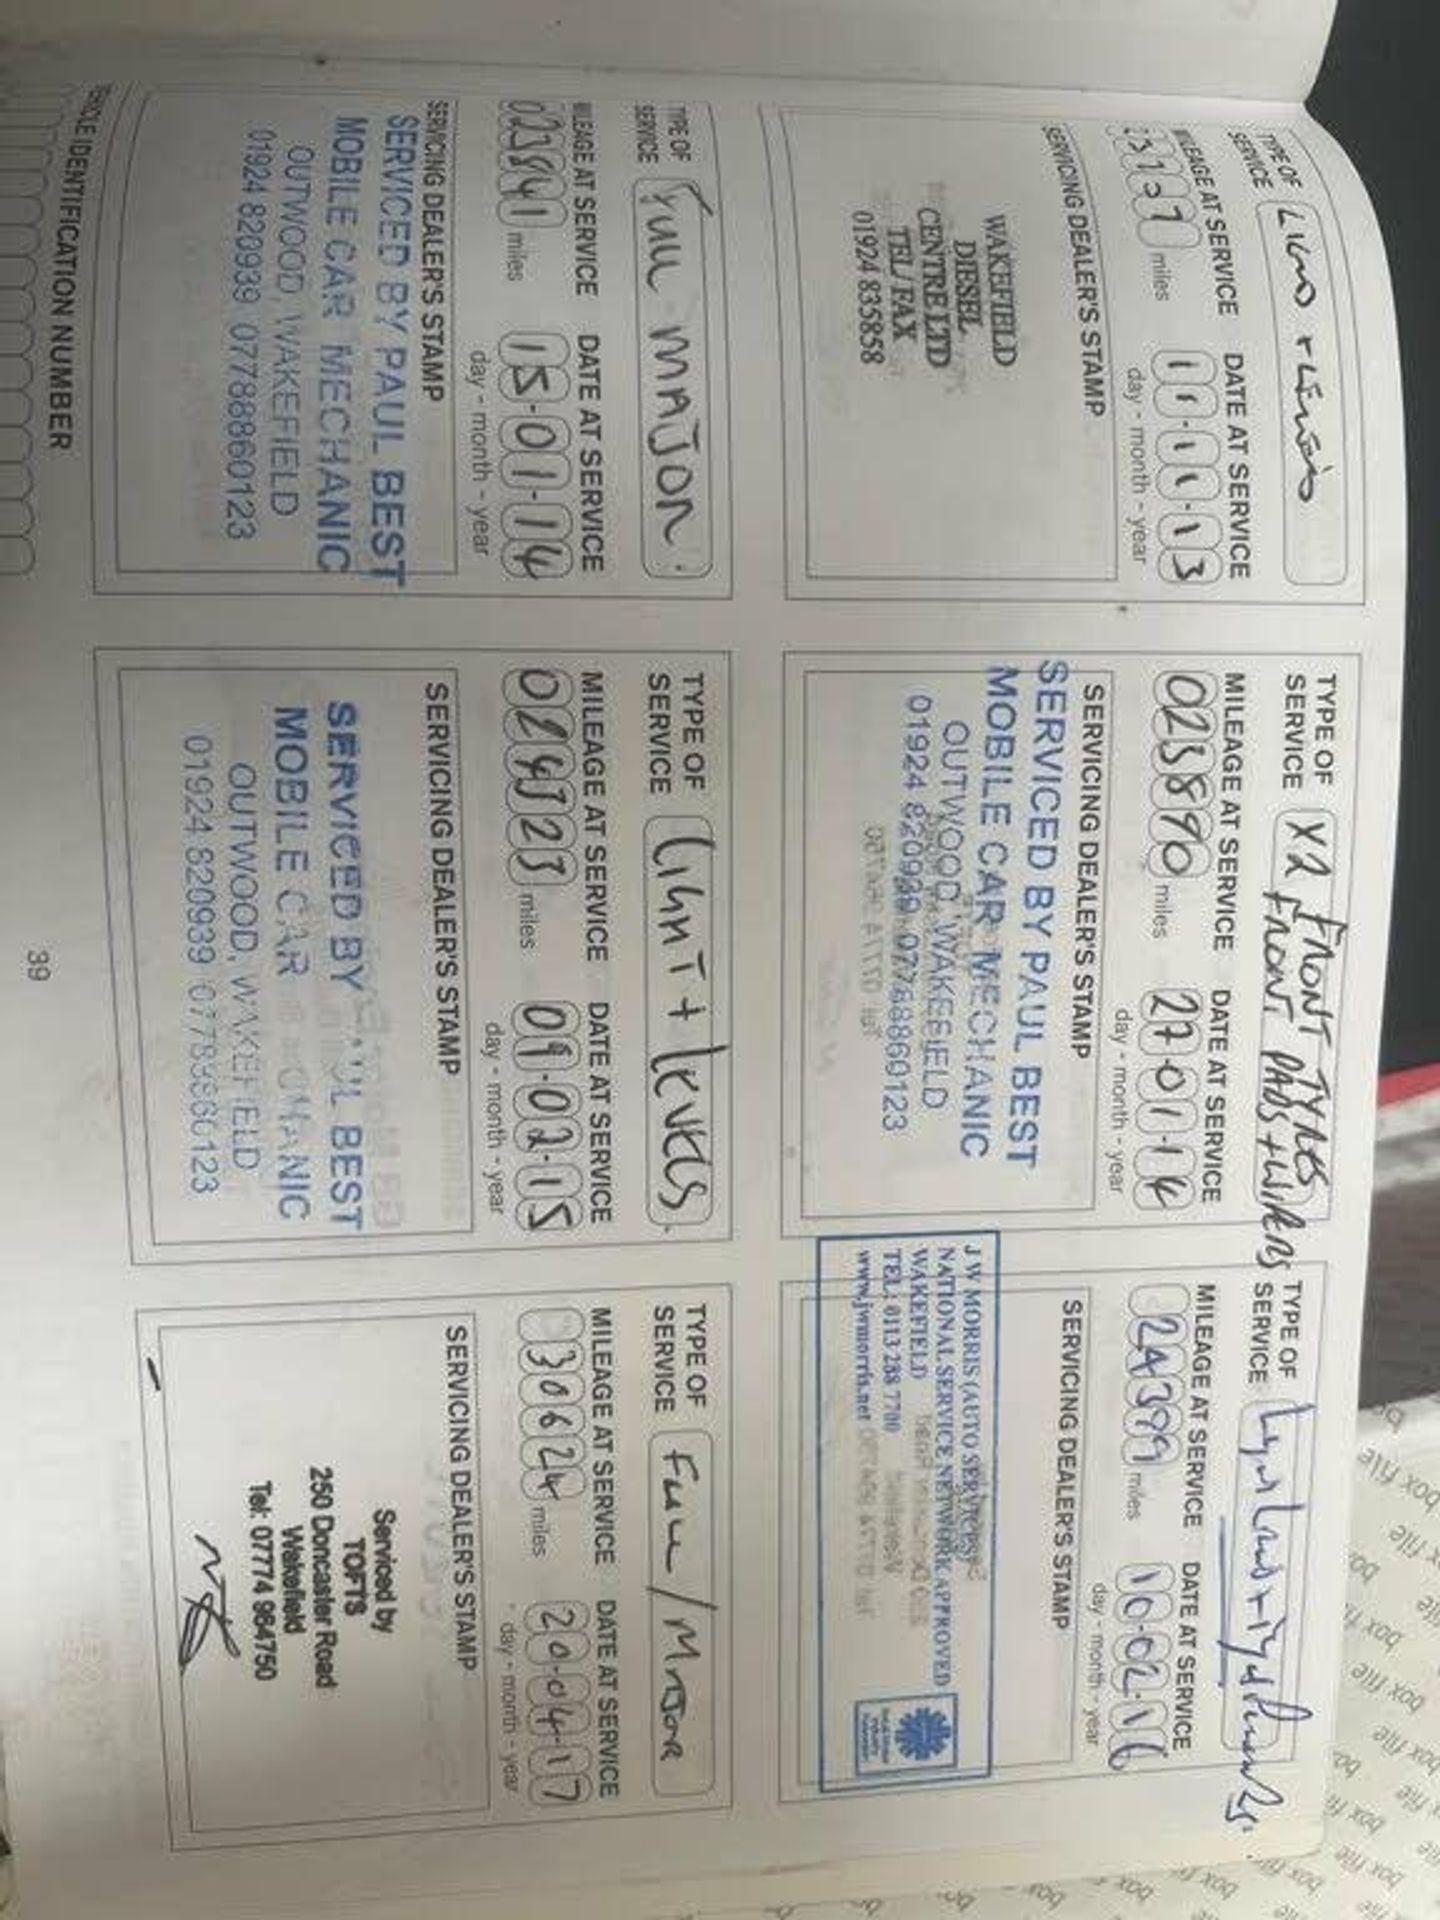 TYPE OF
SERVICE
MILEAGE AT SERVICE DATE AT SERVICE
miles 11-11-13
day - month - year
SERVICING DEALER'S STAMP
WAKEFIELD
DIESEL
CENTRE LTD
TEL/ FAX
01924 835858
TYPE OF
SERVICE X2 FRONT TYRES
FRONT PADS + WIPERS
MILEAGE AT SERVICE DATE AT SERVICE
023890 miles 27-01-14
day - month - year
SERVICING DEALER'S STAMP
SERVICED BY PAUL BEST
MOBILE CAR MECHANIC
OUTWOOD, WAKEFIELD
01924 820939 07788860123
TYPE OF
SERVICE
MILEAGE AT SERVICE DATE AT SERVICE
24399 miles 10-02-16
day - month - year
SERVICING DEALER'S STAMP
J W MORRIS (AUTO SERVICES)
NATIONAL SERVICE NETWORK APPROVED
WAKEFIELD
TEL: 0113 288 7700
www.jwmorris.net
TYPE OF
SERVICE FULL MAJOR
MILEAGE AT SERVICE DATE AT SERVICE
023841 miles 15-01-14
day - month - year
SERVICING DEALER'S STAMP
SERVICED BY PAUL BEST
MOBILE CAR MECHANIC
OUTWOOD, WAKEFIELD
01924 820939 07788860123
TYPE OF
SERVICE LIGHT + LEVELS
MILEAGE AT SERVICE DATE AT SERVICE
024323 miles 09-02-15
day - month - year
SERVICING DEALER'S STAMP
SERVICED BY PAUL BEST
MOBILE CAR MECHANIC
OUTWOOD, WAKEFIELD
01924 820939 07788860123
TYPE OF
SERVICE FULL/MAJOR
MILEAGE AT SERVICE DATE AT SERVICE
30624 miles 20-04-17
day - month - year
SERVICING DEALER'S STAMP
Serviced by
TOFTS
250 Doncaster Road
Wakefield
Tel: 07774 984750
VEHICLE IDENTIFICATION NUMBER
39
box file
box file
box file
box file
box file
box file